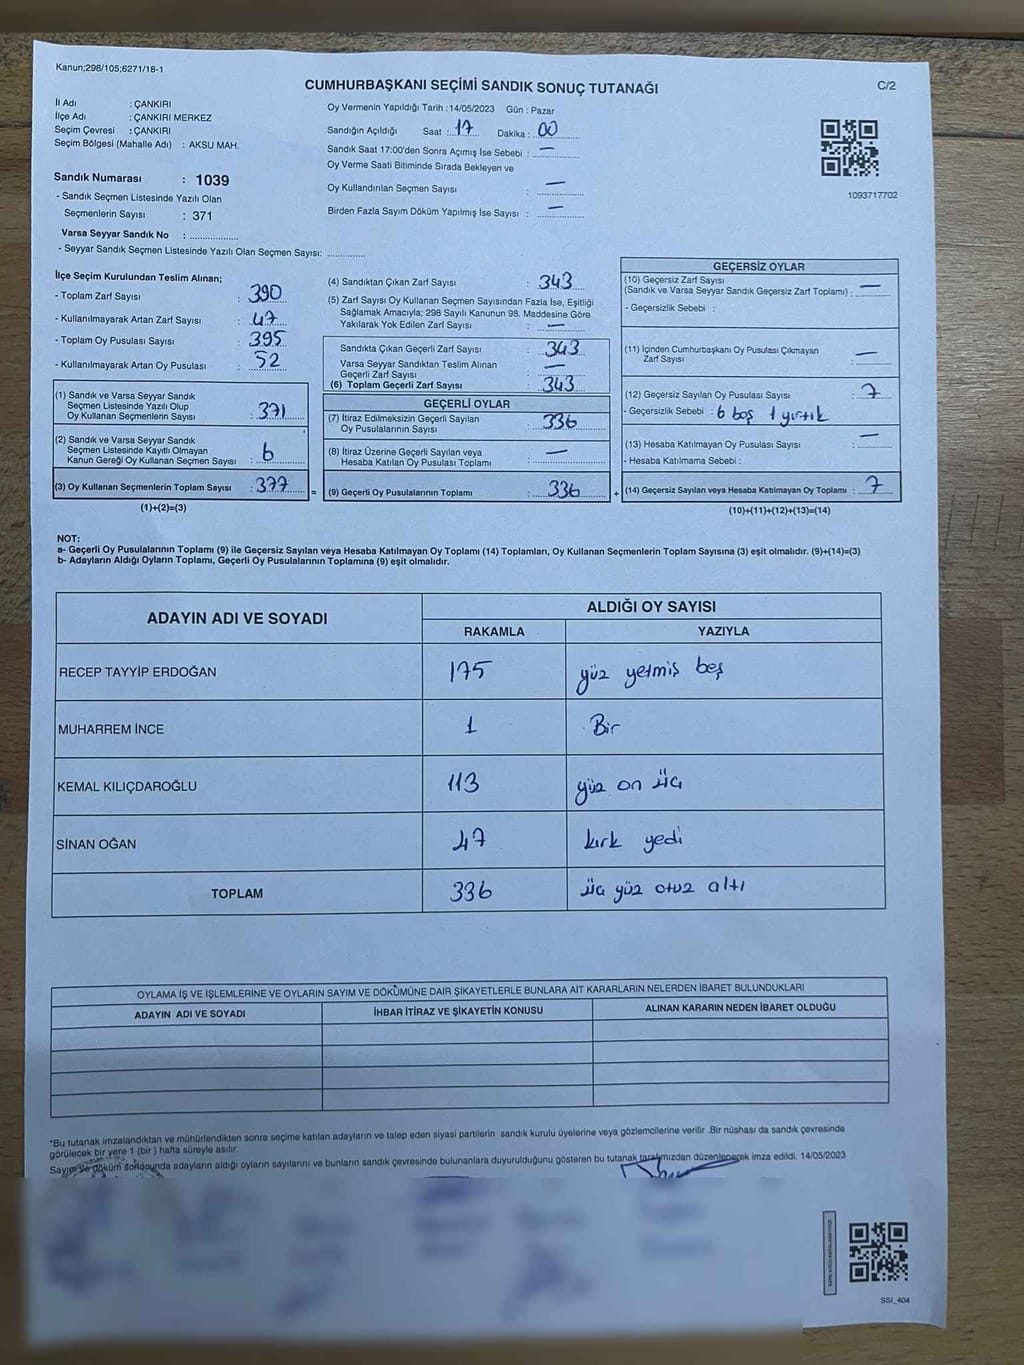 Kanun;298/105;6271/18-1
CUMHURBAŞKANI SEÇİMİ SANDIK SONUÇ TUTANAĞI
C/2
İl Adı : ÇANKIRI
İlçe Adı : ÇANKIRI MERKEZ
Seçim Çevresi : ÇANKIRI
Seçim Bölgesi (Mahalle Adı) : AKSU MAH.
Sandık Numarası : 1039
- Sandık Seçmen Listesinde Yazılı Olan
Seçmenlerin Sayısı : 371
Varsa Seyyar Sandık No : ..............
- Seyyar Sandık Seçmen Listesinde Yazılı Olan Seçmen Sayısı: ..............
Oy Vermenin Yapıldığı Tarih :14/05/2023 Gün : Pazar
Sandığın Açıldığı Saat : 17 Dakika : 00
Sandık Saat 17:00'den Sonra Açımış İse Sebebi : —
Oy Verme Saati Bitiminde Sırada Bekleyen ve
Oy Kullandırılan Seçmen Sayısı : —
Birden Fazla Sayım Döküm Yapılmış İse Sayısı : —
1093717702
İlçe Seçim Kurulundan Teslim Alınan;
- Toplam Zarf Sayısı : 390
- Kullanılmayarak Artan Zarf Sayısı : 47
- Toplam Oy Pusulası Sayısı : 395
- Kullanılmayarak Artan Oy Pusulası : 52
(1) Sandık ve Varsa Seyyar Sandık
Seçmen Listesinde Yazılı Olup
Oy Kullanan Seçmenlerin Sayısı : 371
(2) Sandık ve Varsa Seyyar Sandık
Seçmen Listesinde Kayıtlı Olmayan
Kanun Gereği Oy Kullanan Seçmen Sayısı : 6
(3) Oy Kullanan Seçmenlerin Toplam Sayısı : 377
(1)+(2)=(3)
(4) Sandıktan Çıkan Zarf Sayısı : 343
(5) Zarf Sayısı Oy Kullanan Seçmen Sayısından Fazla İse, Eşitliği
Sağlamak Amacıyla; 298 Sayılı Kanunun 98. Maddesine Göre
Yakılarak Yok Edilen Zarf Sayısı : —
Sandıkta Çıkan Geçerli Zarf Sayısı : 343
Varsa Seyyar Sandıktan Teslim Alınan
Geçerli Zarf Sayısı : —
(6) Toplam Geçerli Zarf Sayısı : 343
GEÇERLİ OYLAR
(7) İtiraz Edilmeksizin Geçerli Sayılan
Oy Pusulalarının Sayısı : 336
(8) İtiraz Üzerine Geçerli Sayılan veya
Hesaba Katılan Oy Pusulası Toplamı : —
= (9) Geçerli Oy Pusulalarının Toplamı : 336 +
GEÇERSİZ OYLAR
(10) Geçersiz Zarf Sayısı
(Sandık ve Varsa Seyyar Sandık Geçersiz Zarf Toplamı) : —
- Geçersizlik Sebebi :
(11) İçinden Cumhurbaşkanı Oy Pusulası Çıkmayan
Zarf Sayısı : —
(12) Geçersiz Sayılan Oy Pusulası Sayısı : 7
- Geçersizlik Sebebi : 6 boş 1 yırtık
(13) Hesaba Katılmayan Oy Pusulası Sayısı : —
- Hesaba Katılmama Sebebi :
(14) Geçersiz Sayılan veya Hesaba Katılmayan Oy Toplamı : 7
(10)+(11)+(12)+(13)=(14)
NOT:
a- Geçerli Oy Pusulalarının Toplamı (9) ile Geçersiz Sayılan veya Hesaba Katılmayan Oy Toplamı (14) Toplamları, Oy Kullanan Seçmenlerin Toplam Sayısına (3) eşit olmalıdır. (9)+(14)=(3)
b- Adayların Aldığı Oyların Toplamı, Geçerli Oy Pusulalarının Toplamına (9) eşit olmalıdır.
ADAYIN ADI VE SOYADI ALDIĞI OY SAYISI
RAKAMLA YAZIYLA
RECEP TAYYİP ERDOĞAN 175 yüz yetmiş beş
MUHARREM İNCE 1 Bir
KEMAL KILIÇDAROĞLU 113 yüz on üç
SİNAN OĞAN 47 kırk yedi
TOPLAM 336 üç yüz otuz altı
OYLAMA İŞ VE İŞLEMLERİNE VE OYLARIN SAYIM VE DÖKÜMÜNE DAİR ŞİKAYETLERLE BUNLARA AİT KARARLARIN NELERDEN İBARET BULUNDUKLARI
ADAYIN ADI VE SOYADI İHBAR İTİRAZ VE ŞİKAYETİN KONUSU ALINAN KARARIN NEDEN İBARET OLDUĞU
*Bu tutanak imzalandıktan ve mühürlendikten sonra seçime katılan adayların ve talep eden siyasi partilerin sandık kurulu üyelerine veya gözlemcilerine verilir .Bir nüshası da sandık çevresinde
görülecek bir yere 1 (bir ) hafta süreyle asılır.
Sayım ve döküm sonucunda adayların aldığı oyların sayılarını ve bunların sandık çevresinde bulunanlara duyurulduğunu gösteren bu tutanak tarafımızdan düzenlenerek imza edildi. 14/05/2023
SSI_404